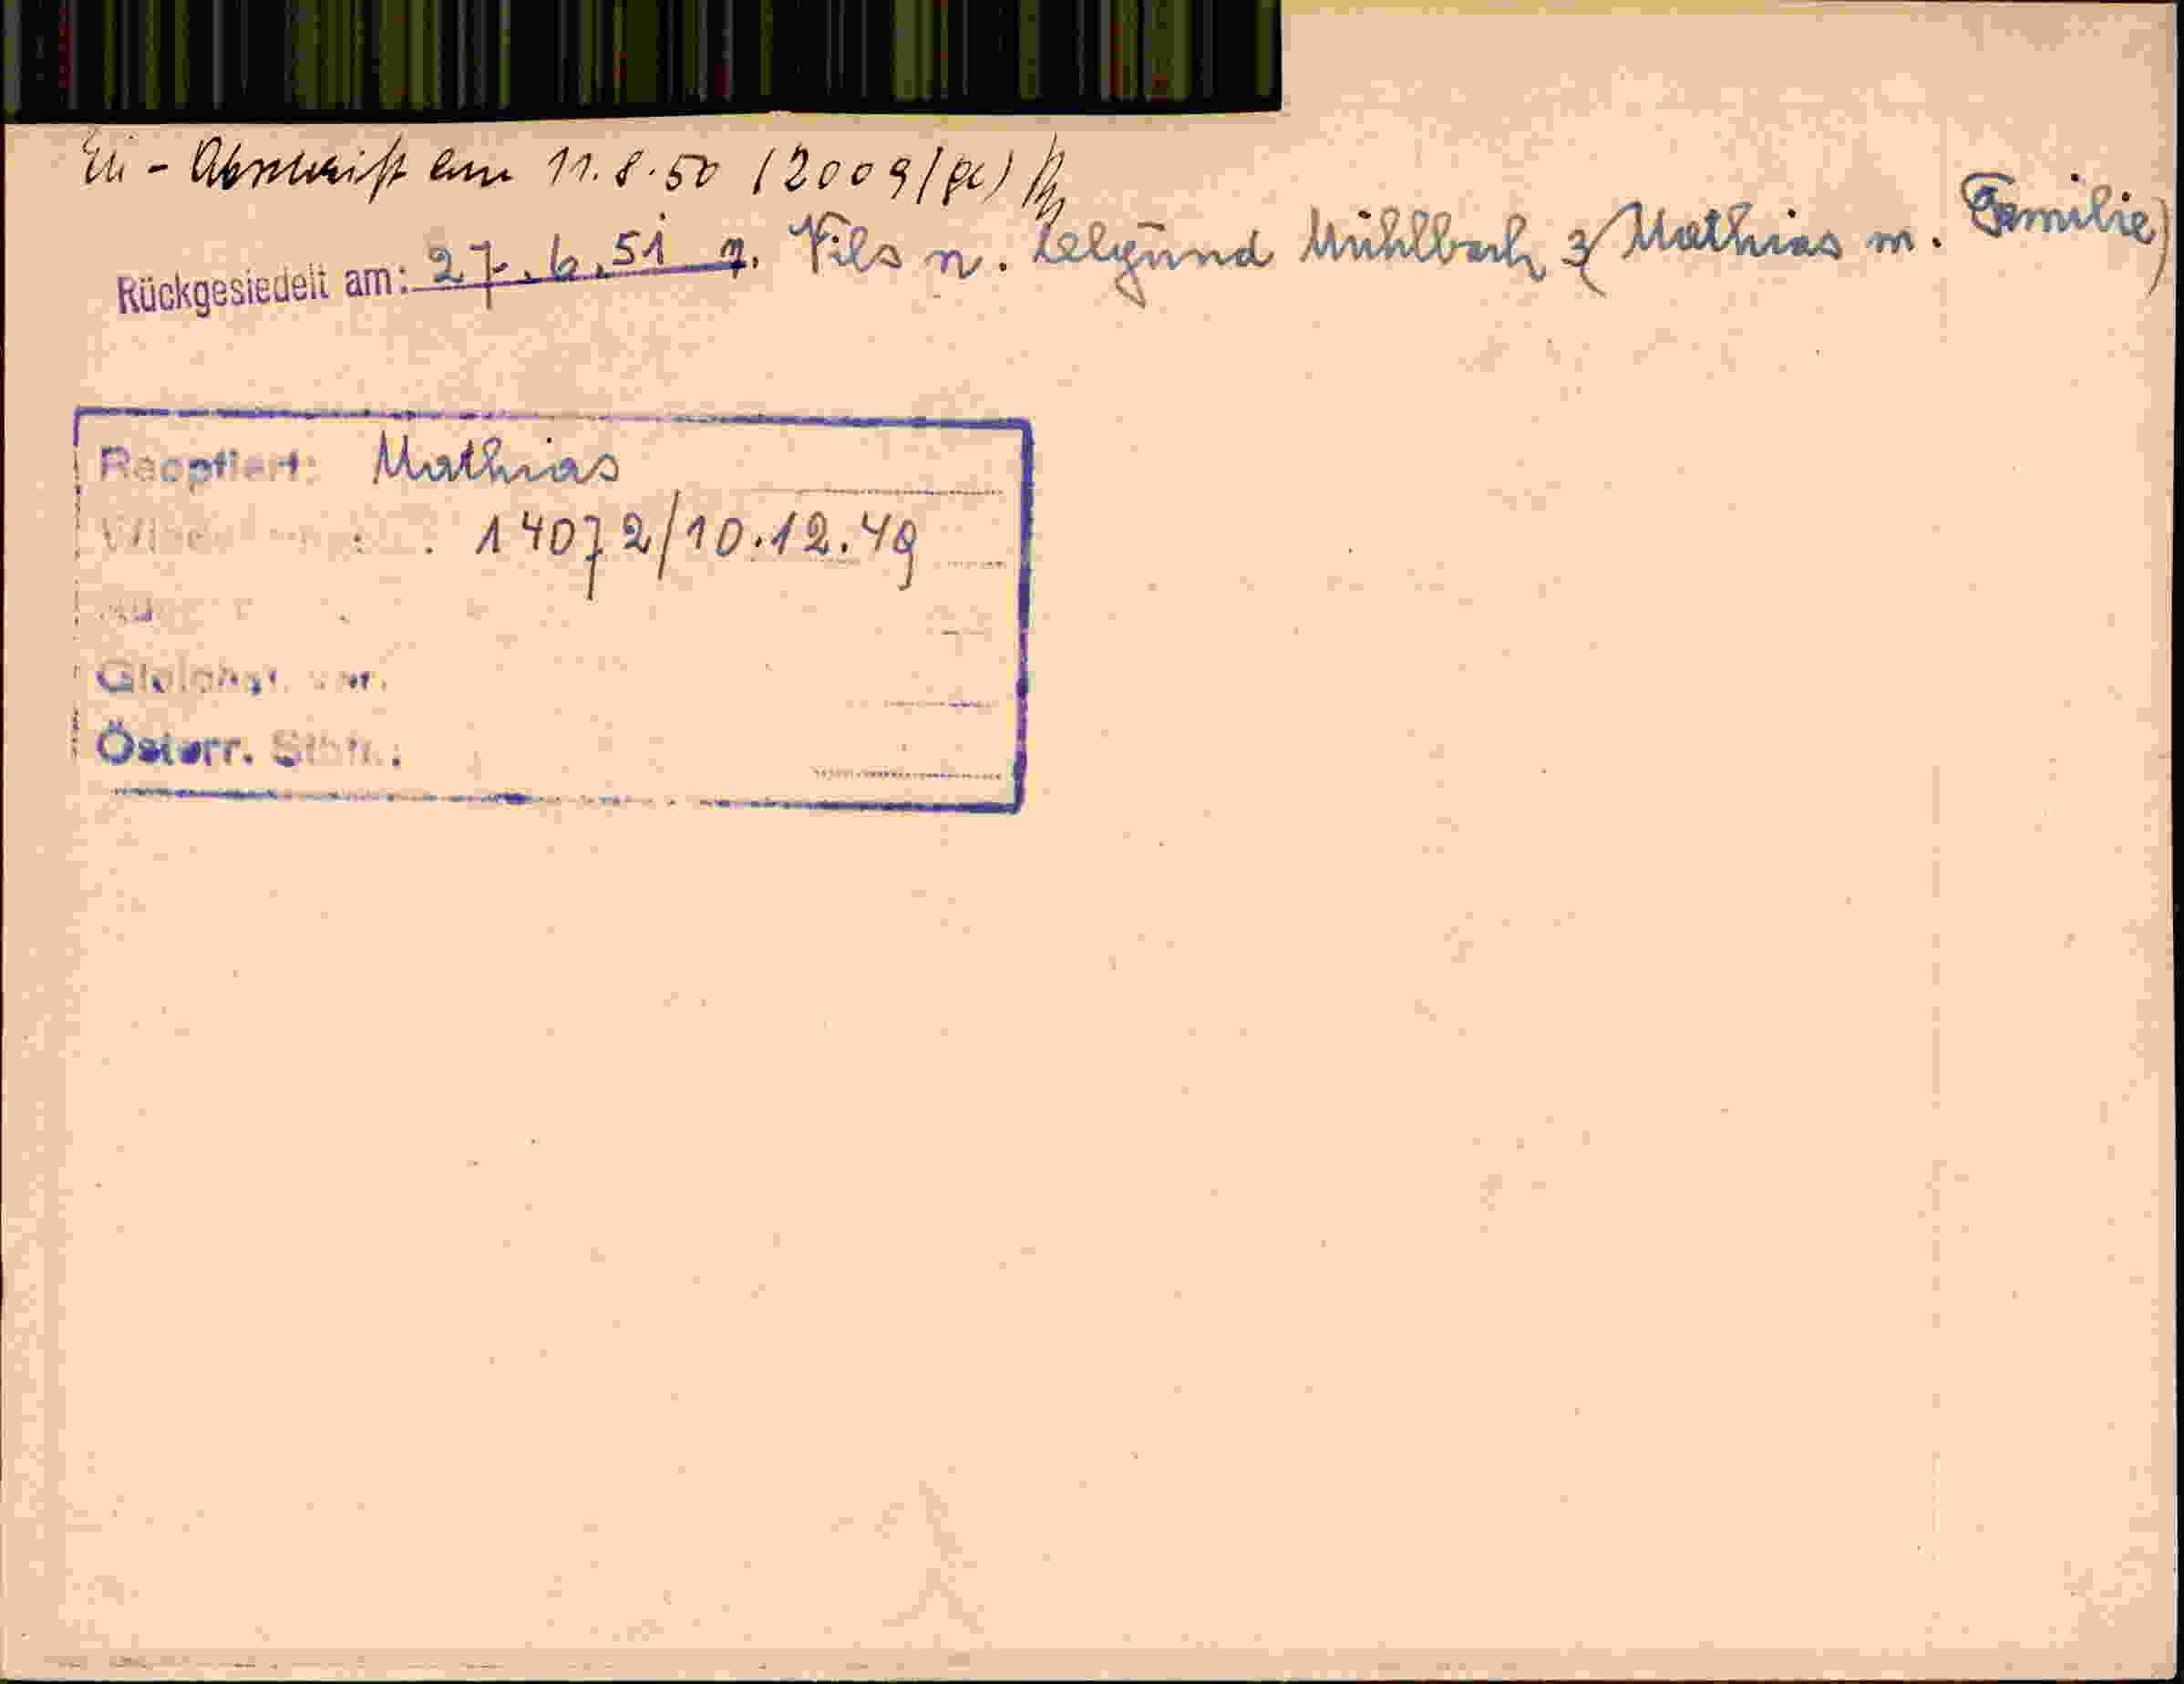 Eu - Abschrift am 11.8.50 (2009/
Rückgesiedelt am: 27.6.51 v. Vils n. Selgünd Mühlbach 3 (Mathias m. Familie)
Reoptiert: Mathias
14072/10.12.49
Gleichst. ver.
Österr. Stb.: